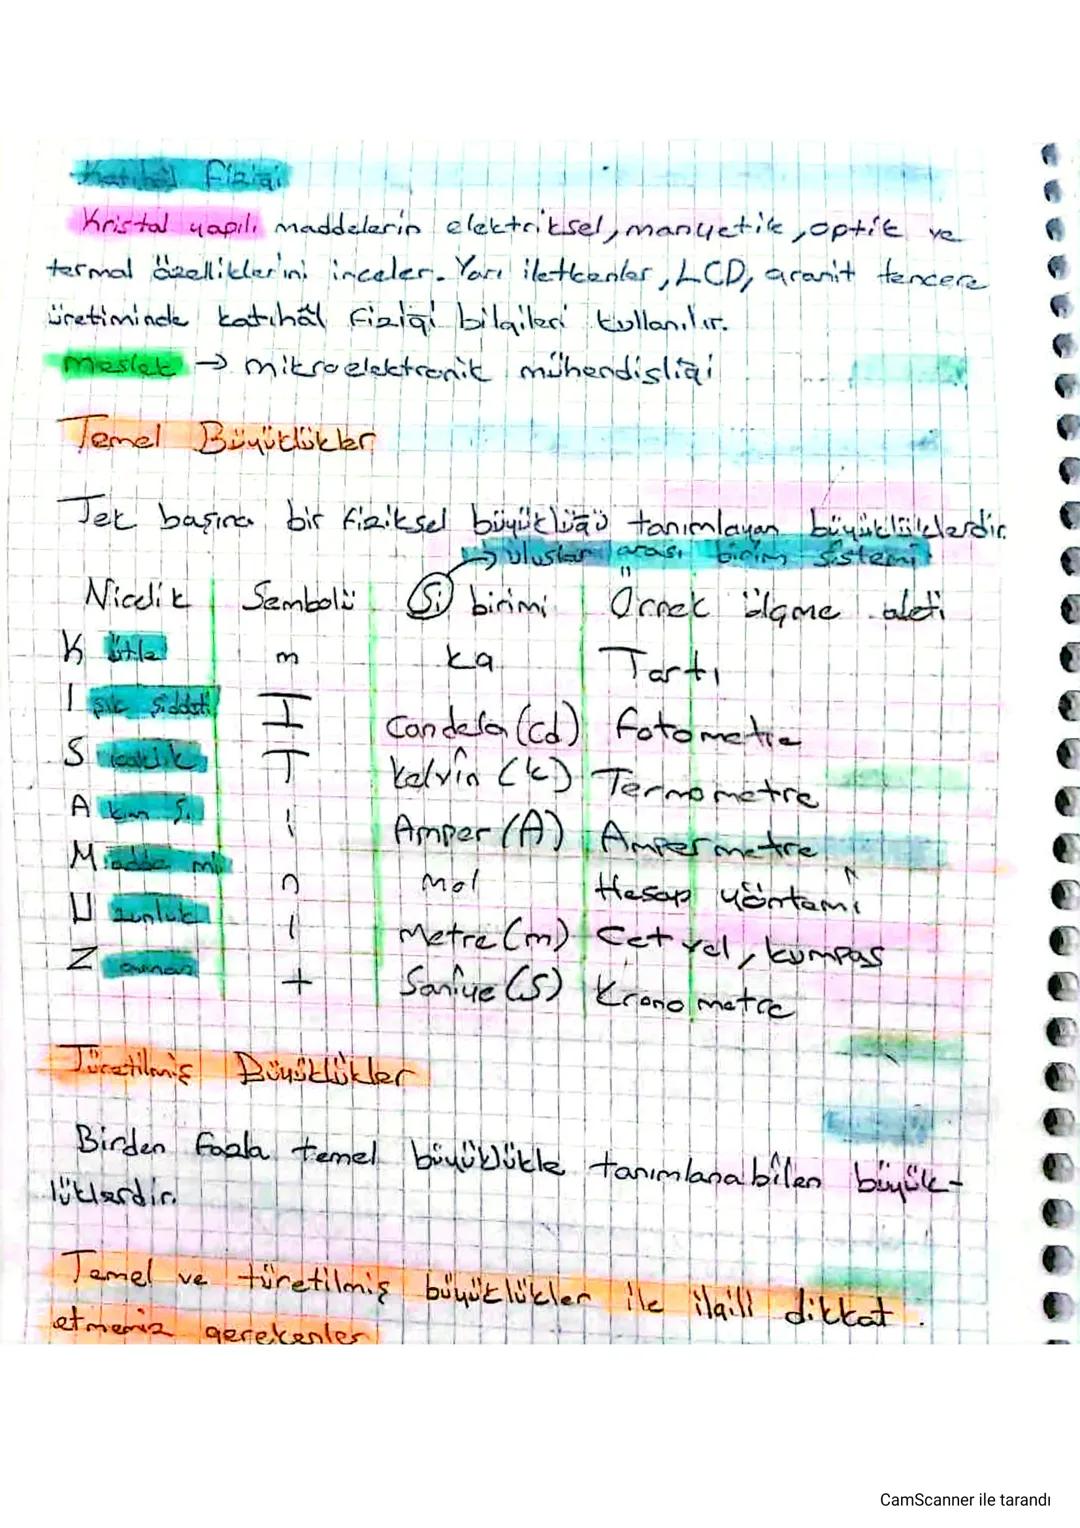 Katıhâl Fiziği
Kristal yapılı maddelerin elektriksel, manyetik, optik ve
termal özelliklerini inceler. Yarı iletkenler, LCD, granit tencere
üretiminde katıhâl fiziği bilgileri kullanılır.
Meslek → mikroelektronik mühendisliği
Temel Büyüklükler
Tek başına bir fiziksel büyüklüğü tanımlayan büyüklüklerdir.
→ uluslar arası birim sistemi
Nicelik Sembolü Si birimi Örnek ölçme aleti
Kütle m kg Tartı
Işık şiddeti I Candela (cd) fotometre
Sıcaklık T Kelvin (k) Termometre
Akım Ş. i Amper (A) Ampermetre
Madde mik n Mol Hesap yöntemi
Uzunluk l Metre (m) Cetvel, kumpas
Zaman t Saniye (S) Kronometre
Türetilmiş Büyüklükler
Birden fazla temel büyüklükle tanımlanabilen büyük-
lüklerdir.
Temel ve türetilmiş büyüklükler ile ilgili dikkat
etmeniz gerekenler
CamScanner ile tarandı